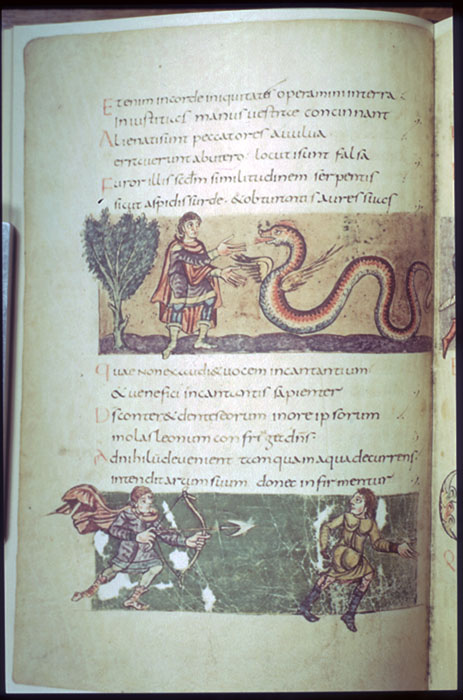 Etenim in corde iniquitates operamini in terra
Iniustitias manus vestrae concinnant
Alienati sunt peccatores a vulva
erraverunt ab utero · locuti sunt falsa
Furor illis scdm similitudinem serpentis
sicut aspidis surde · & obturantis aures suas
Quae non exaudi& vocem incantantium
& venefici incantantis sapienter
Ds conter& dentes eorum in ore ipsorum
molas leonum confringet dns·
Ad nihilū devenient tamquam aqua decurrens·
intendit arcum suum donec infirmentur